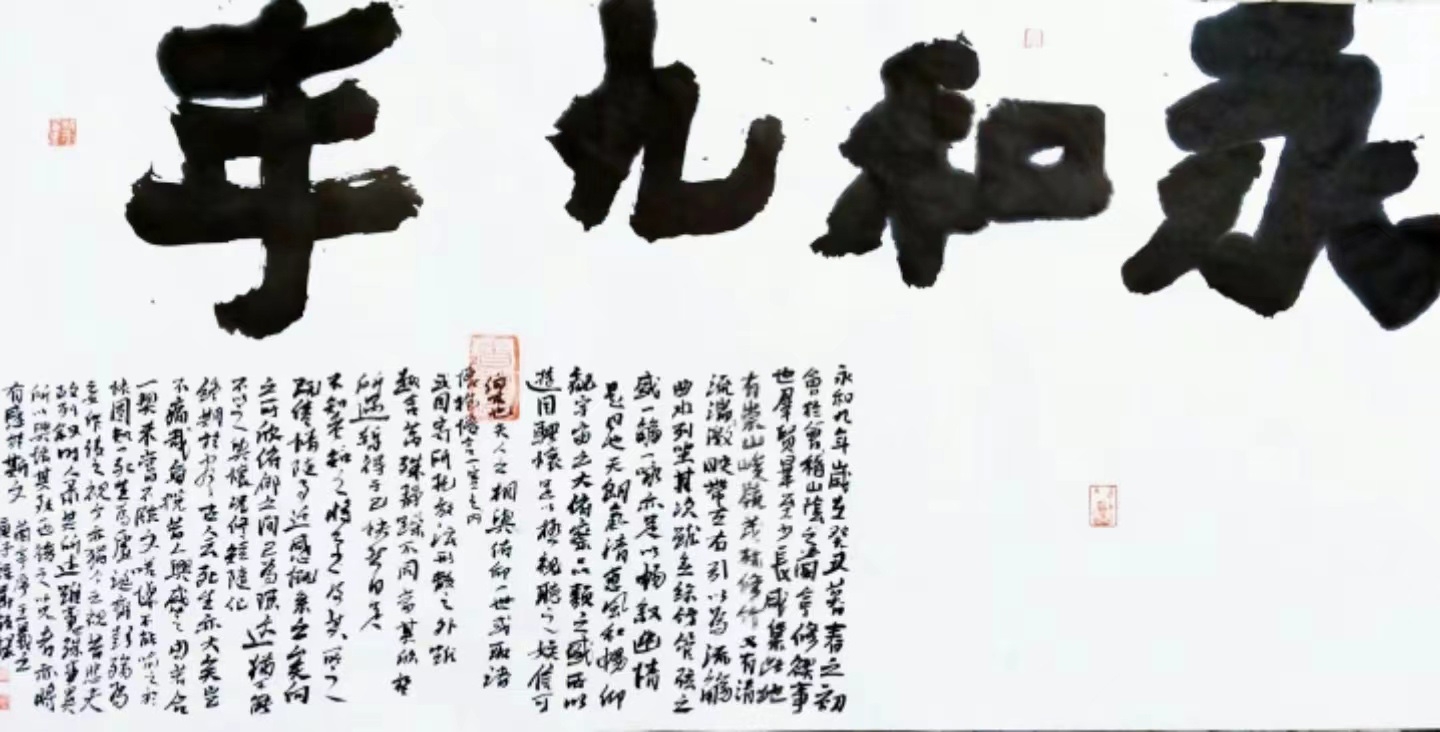 永和九年
永和九年歲在癸丑暮春之初
會於會稽山陰之蘭亭修禊事
也羣賢畢至少長咸集此地
有崇山峻嶺茂林修竹又有清
流湍激映帶左右引以為流觴
曲水列坐其次雖無絲竹管弦之
盛一觴一詠亦足以暢敘幽情
是日也天朗氣清惠風和暢仰
觀宇宙之大俯察品類之盛所以
遊目騁懷足以極視聽之娛信可
樂也夫人之相與俯仰一世或取諸
懷抱悟言一室之內
或因寄所托放浪形骸之外雖
趣舍萬殊靜躁不同當其欣於
所遇暫得于己快然自足
不知老之將至及其所之
既倦情隨事遷感慨系之矣向
之所欣俯仰之間已為陳迹猶不能
不以之興懷況修短隨化
終期於盡古人云死生亦大矣豈
不痛哉每攬昔人興感之由若合
一契未嘗不臨文嗟悼不能喻之於
懷固知一死生為虛誕齊彭殤為
妄作後之視今亦猶今之視昔悲夫
故列敘時人錄其所述雖世殊事異
所以興懷其致一也後之覽者亦將
有感於斯文 蘭亭序 王羲之
庚子